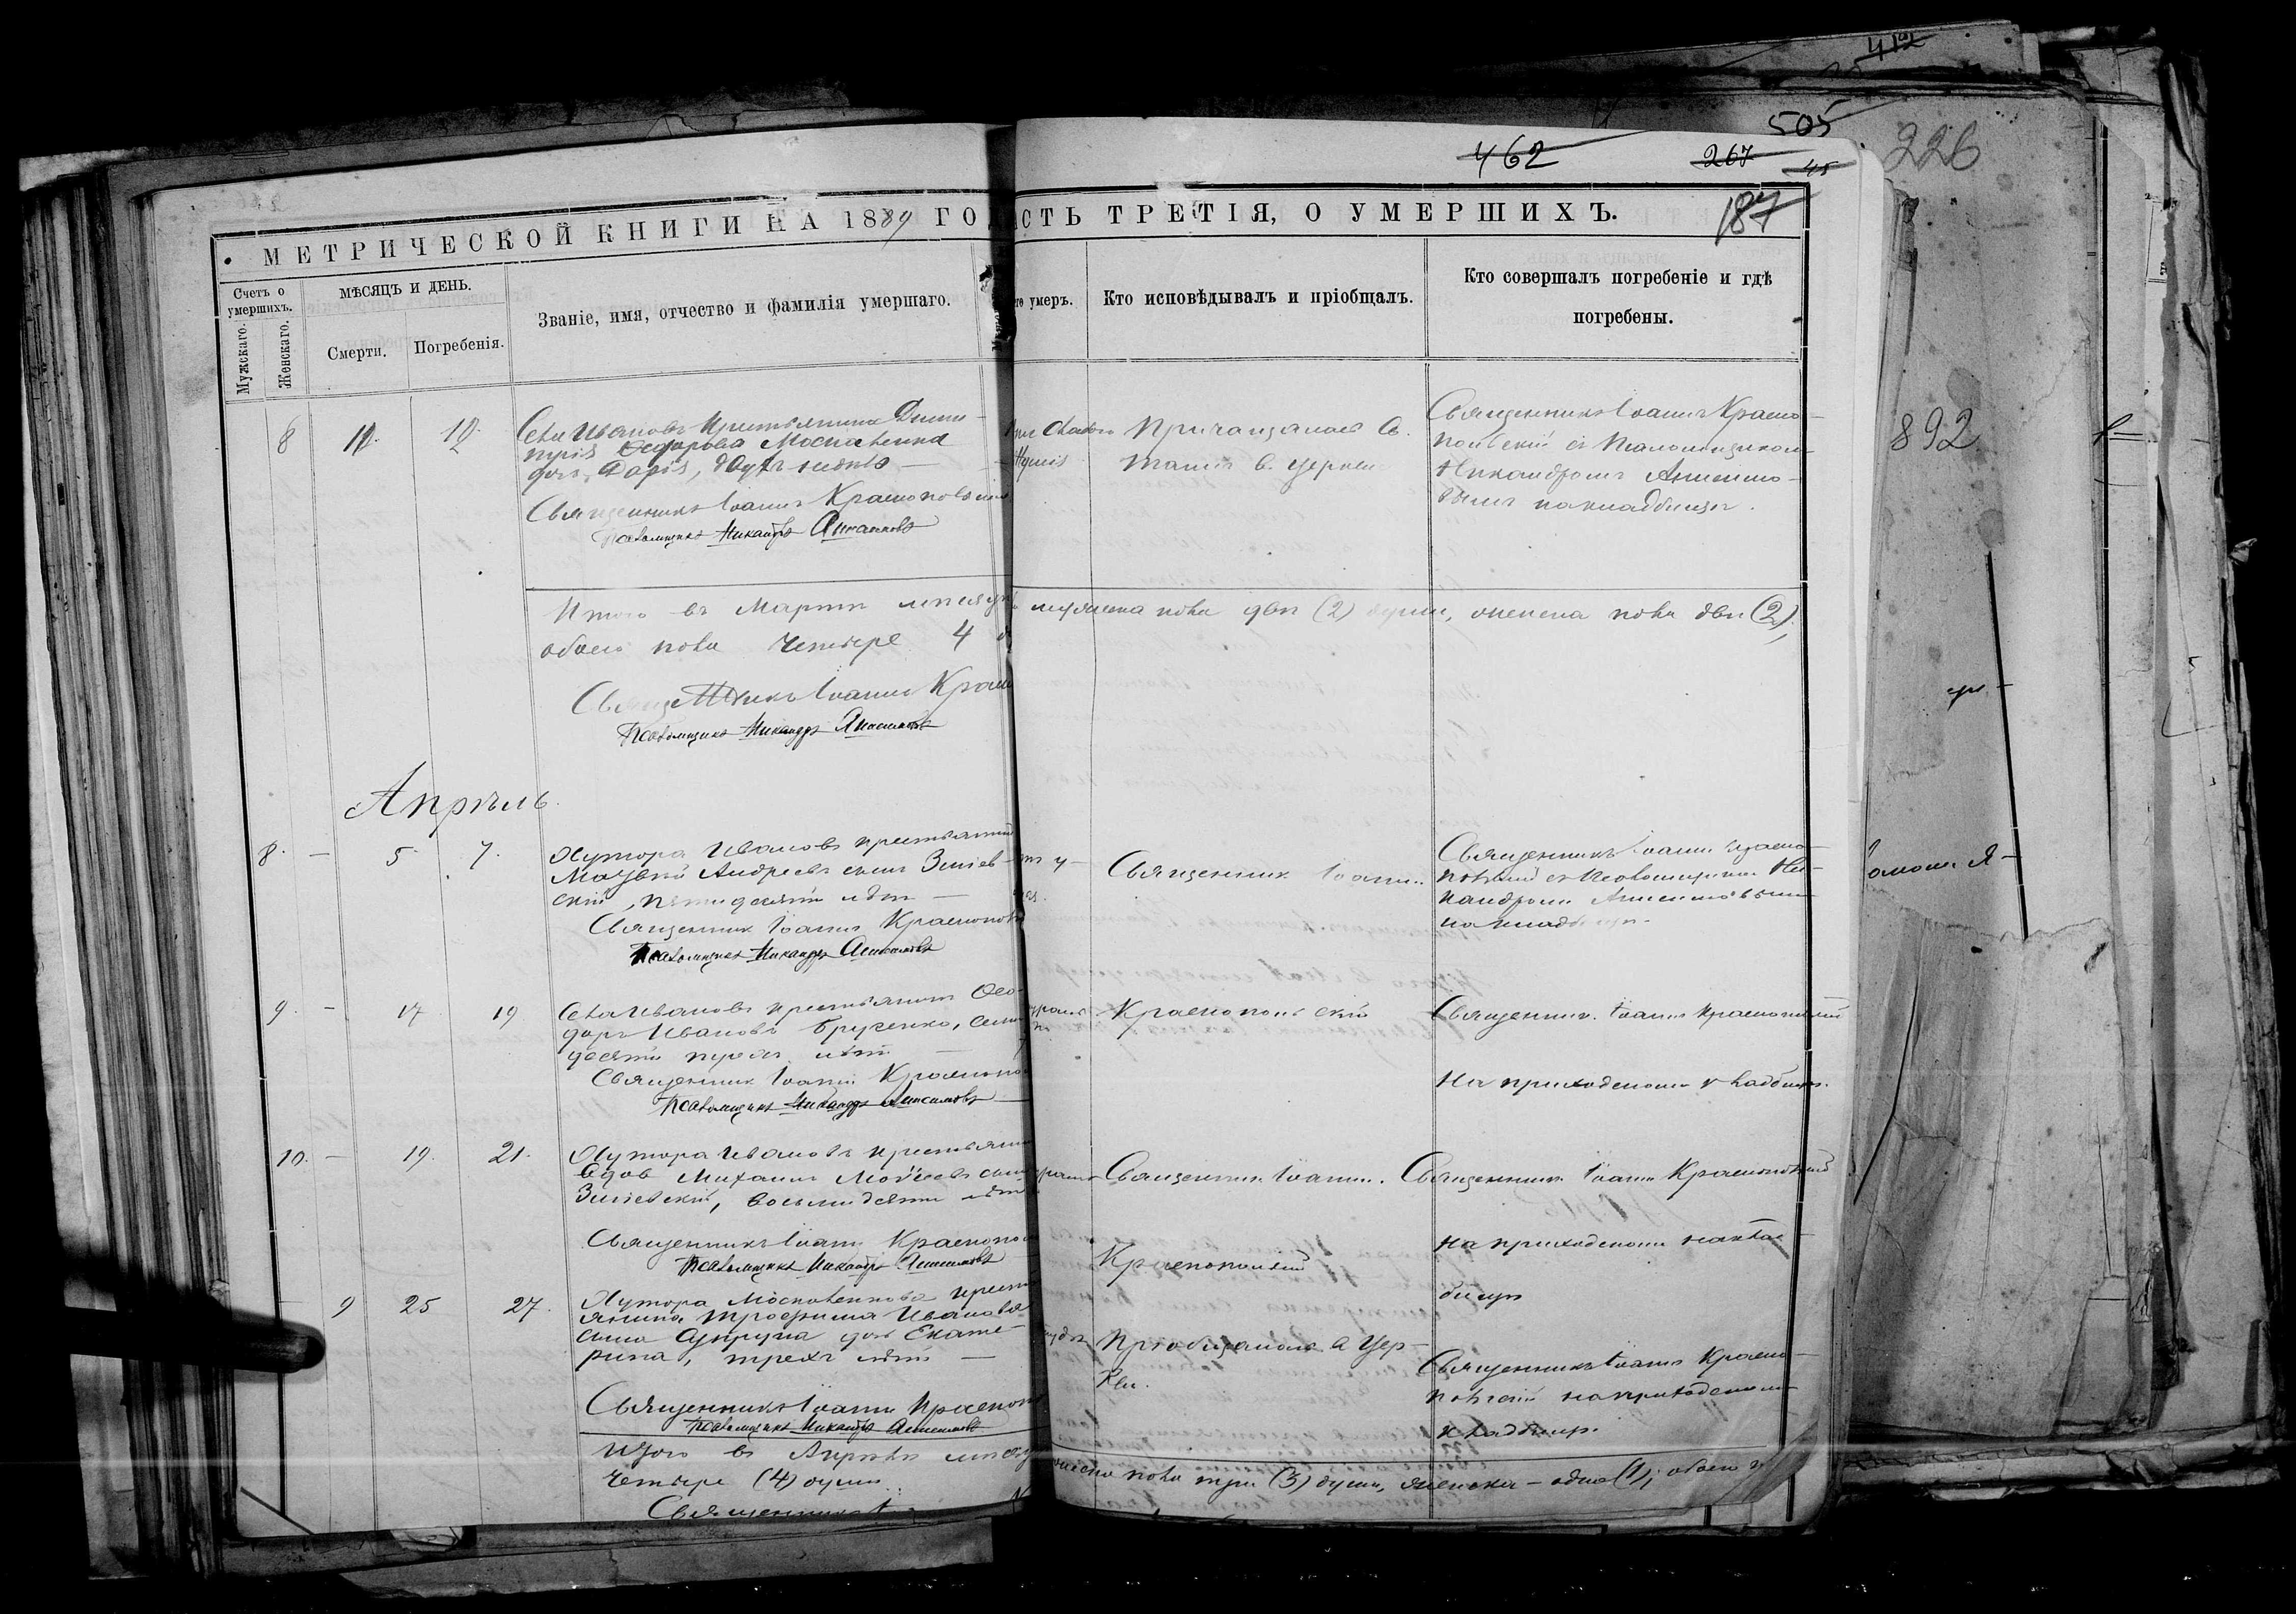 412
505
462 267 45
226
МЕТРИЧЕСКОЙ КНИГИ НА 1889 ГО
СТЬ ТРЕТІЯ, О УМЕРШИХЪ.
187
Счетъ о умершихъ.
Мужскаго.
Женскаго.
МѢСЯЦЪ И ДЕНЬ.
Смерти.
Погребенія.
Званіе, имя, отчество и фамилія умершаго.
умеръ.
Кто исповѣдывалъ и пріобщалъ.
Кто совершалъ погребеніе и гдѣ
погребены.
8 10. 12.
Села Иванова крестьянина Дими-
трія Ѳедорова Москаленка
дочь Дарія, двухъ
Священникъ Іоаннъ Краснопольскій
Псаломщикъ Никандръ Анисимовъ
Причащалась Св.
Таинъ в. церкви
Священникъ Іоаннъ Красно-
польскій съ Псаломщикомъ
Никандромъ Анисимо-
вымъ на кладбищѣ.
892
Итого въ Мартѣ мѣсяцѣ мужеска пола двѣ (2) души, женска пола двѣ (2),
обоего пола четыре 4
Священникъ Іоаннъ Красн
Псаломщикъ Никандръ Анисимовъ
Апрѣль
8. — 5. 7.
Хутора Иванова крестьянинъ
Андреевъ сынъ Зміев-
скій, пятидесяти лѣтъ —
Священникъ Іоаннъ Краснопол
Псаломщикъ Никандръ Анисимовъ
Священникъ Іоаннъ
Священникъ Іоаннъ Красно-
польскій съ Псаломщикомъ Ни-
кандромъ Анисимовымъ
на кладбищѣ.
9. — 17 19
Села Иванова крестьянинъ Ѳео-
доръ Ивановъ
десяти трехъ лѣтъ —
Священникъ Іоаннъ Краснопо
Псаломщикъ Никандръ Анисимовъ
Краснопольскій
Священник. Іоаннъ Краснопольскій
На приходскомъ кладбищѣ.
10. — 19. 21.
Хутора Иванова крестьянинъ
вдов Михаилъ сынъ
Зміевскій, восьмидесяти лѣтъ
Священникъ Іоаннъ Краснопо
Псаломщикъ Никандръ Анисимовъ
Священникъ Іоаннъ.
Краснопольскій
Священникъ Іоаннъ Краснопольскій
на приходскомъ клад-
бищѣ
— 9 25 27.
Хутора Москаленкова крест
янина Трофима Иванова
сына дочь Екате-
рина, трехъ лѣтъ —
Священникъ Іоаннъ Краснопол
Псаломщикъ Никандръ Анисимовъ
Пріобщалась в Цер-
кви.
Священникъ Іоаннъ Красно-
польскій на приходскомъ
кладбищѣ.
Итого въ Апрѣлѣ мѣсяц пола три (3) души, женска — одна (1); обоего
четыре (4) души
Священникъ